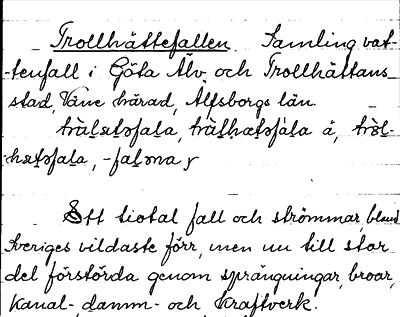 Trollhättefallen. Samling vat-
-tenfall i Göta Älv och Trollhättans
stad, Väne härad, Älfsborgs län.
å,
Ett tiotal fall och strömmar, bland
Sveriges vildaste förr, men nu till stor
del förstörda genom sprängningar, broar,
kanal-, damm- och kraftverk.